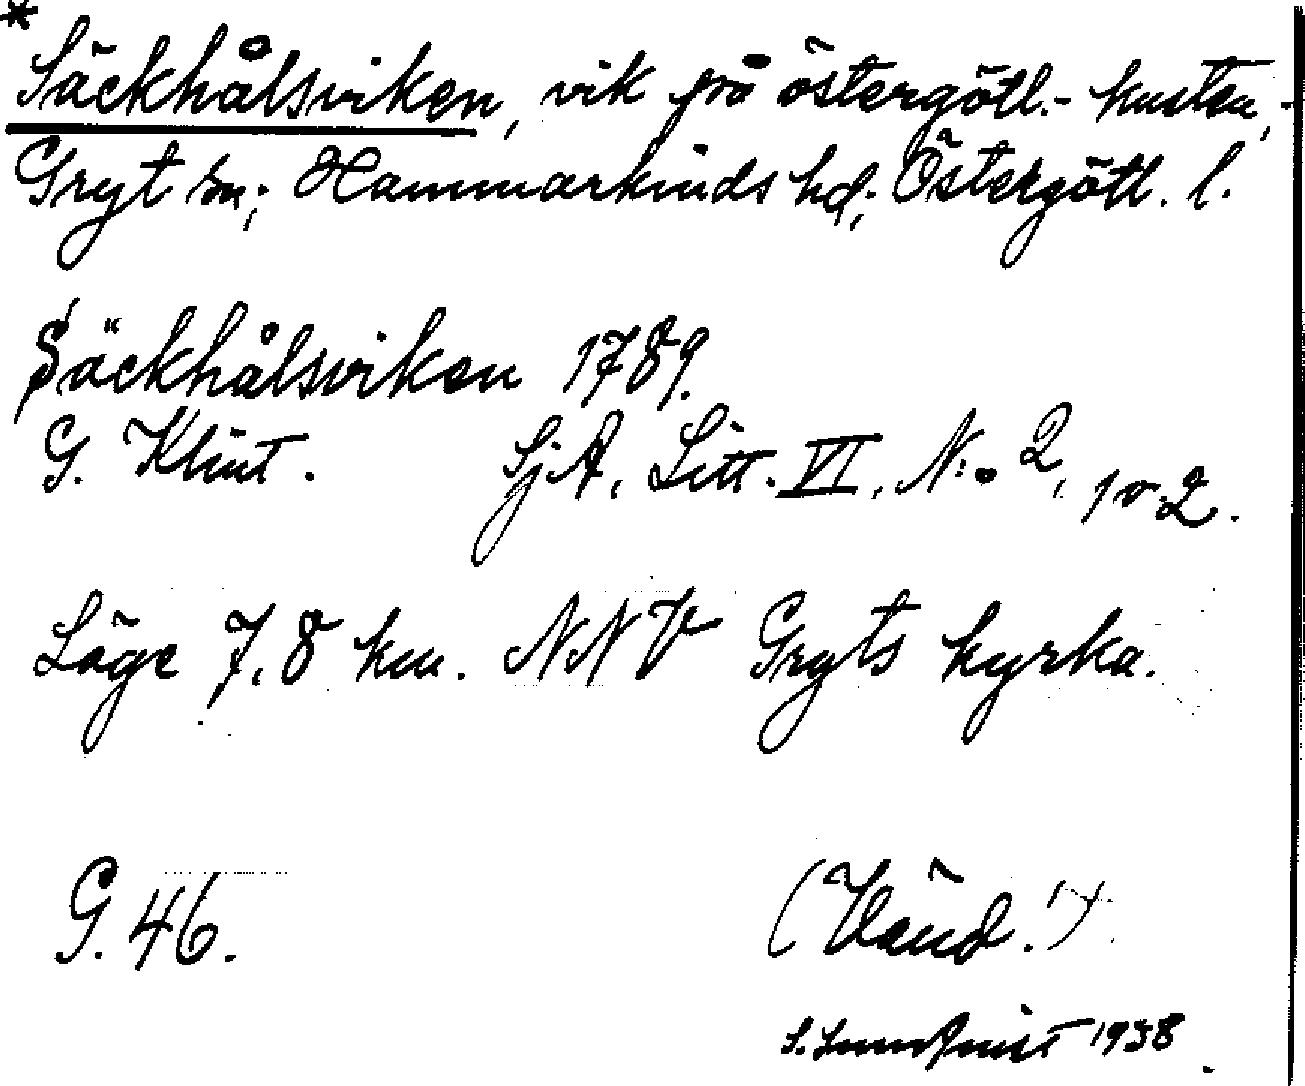 * Säckhålsviken, vik på östergötl.- kusten,-
Gryt sn; Hammarkinds hd; Östergötl. l.
Säckhålsviken 1789.
G. Klint. SjA, Litt. VI, N:o 2, 1 o 2.
Läge 7,8 km. NNV Gryts kyrka.
G. 46. (Vänd!)
S. 1938